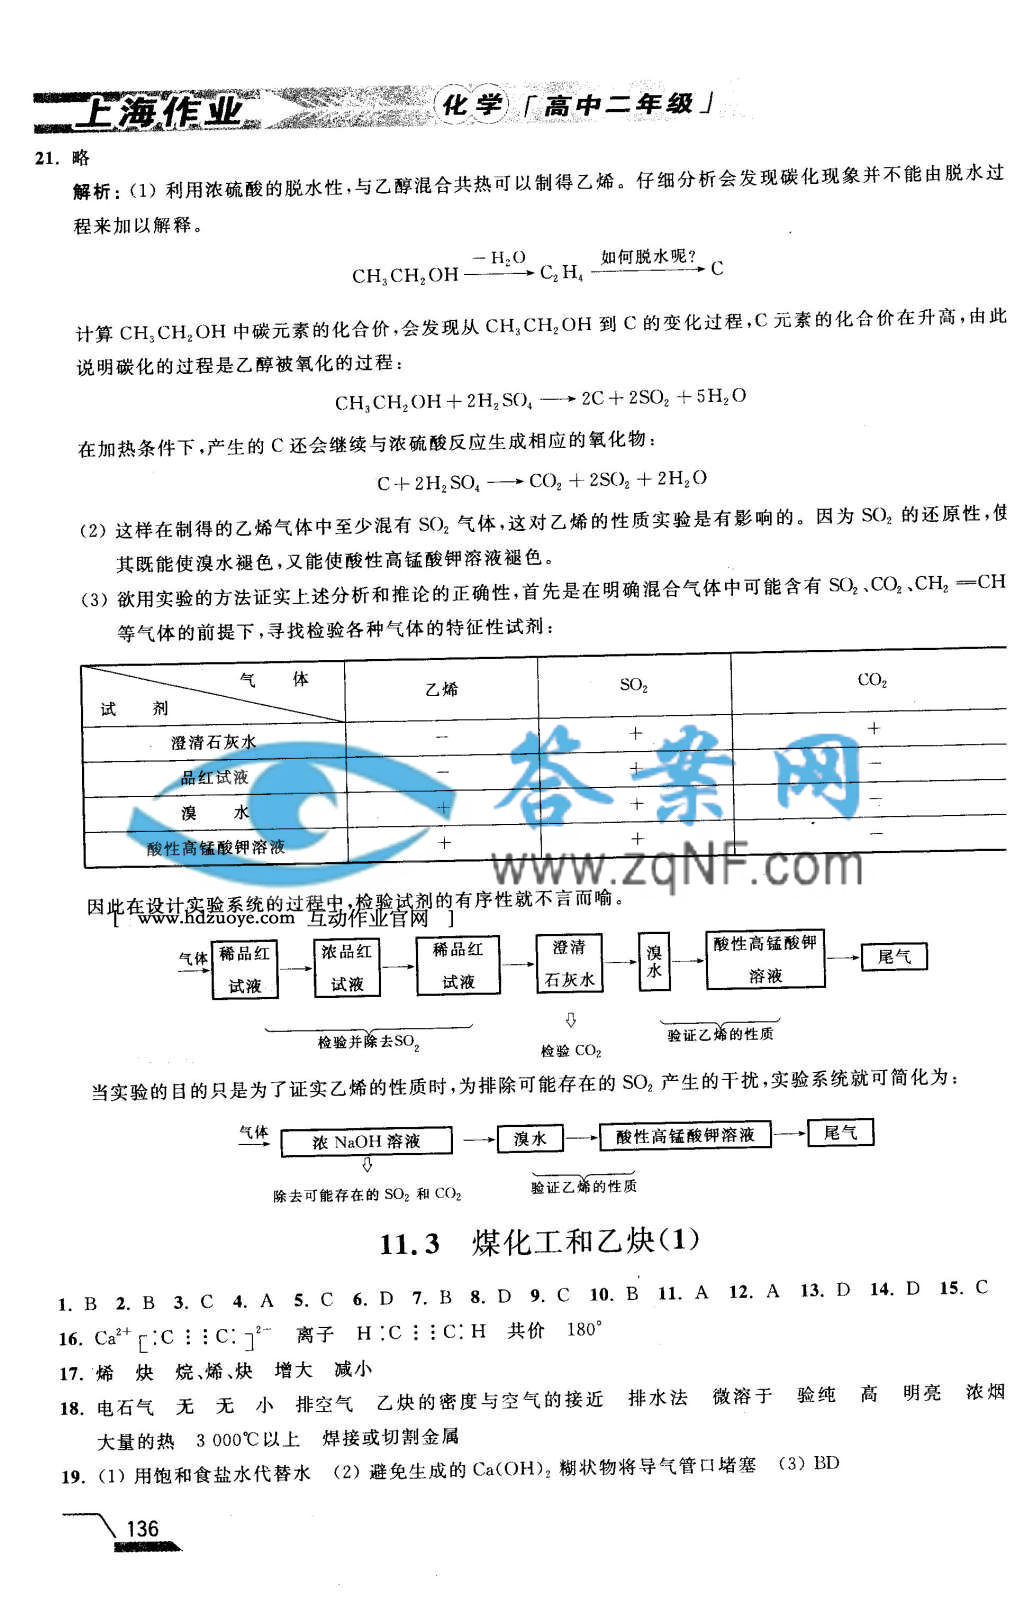 上海作业 化学「高中二年级」
21. 略
解析:(1) 利用浓硫酸的脱水性,与乙醇混合共热可以制得乙烯。仔细分析会发现碳化现象并不能由脱水过
程来加以解释。
CH₃CH₂OH —−H₂O→ C₂H₄ —如何脱水呢?→ C
计算 CH₃CH₂OH 中碳元素的化合价,会发现从 CH₃CH₂OH 到 C 的变化过程,C 元素的化合价在升高,由此
说明碳化的过程是乙醇被氧化的过程:
CH₃CH₂OH+2H₂SO₄ → 2C+2SO₂+5H₂O
在加热条件下,产生的 C 还会继续与浓硫酸反应生成相应的氧化物:
C+2H₂SO₄ → CO₂+2SO₂+2H₂O
(2) 这样在制得的乙烯气体中至少混有 SO₂ 气体,这对乙烯的性质实验是有影响的。因为 SO₂ 的还原性,使
其既能使溴水褪色,又能使酸性高锰酸钾溶液褪色。
(3) 欲用实验的方法证实上述分析和推论的正确性,首先是在明确混合气体中可能含有 SO₂、CO₂、CH₂=CH
等气体的前提下,寻找检验各种气体的特征性试剂:
气体 试剂 乙烯 SO₂ CO₂
澄清石灰水 − + +
品红试液 − + −
溴水 + + −
酸性高锰酸钾溶液 + + −
答案网
www.zqNF.com
因此在设计实验系统的过程中,检验试剂的有序性就不言而喻。
[ www.hdzuoye.com 互动作业官网 ]
气体 → 稀品红试液 → 浓品红试液 → 稀品红试液 → 澄清石灰水 → 溴水 → 酸性高锰酸钾溶液 → 尾气
检验并除去SO₂ 检验 CO₂ 验证乙烯的性质
当实验的目的只是为了证实乙烯的性质时,为排除可能存在的 SO₂ 产生的干扰,实验系统就可简化为:
气体 → 浓 NaOH 溶液 → 溴水 → 酸性高锰酸钾溶液 → 尾气
除去可能存在的 SO₂ 和 CO₂ 验证乙烯的性质
11.3 煤化工和乙炔(1)
1. B 2. B 3. C 4. A 5. C 6. D 7. B 8. D 9. C 10. B 11. A 12. A 13. D 14. D 15. C
16. Ca²⁺[:C⋮⋮C:]²⁻ 离子 H:C⋮⋮C:H 共价 180°
17. 烯 炔 烷、烯、炔 增大 减小
18. 电石气 无 无 小 排空气 乙炔的密度与空气的接近 排水法 微溶于 验纯 高 明亮 浓烟
大量的热 3 000℃以上 焊接或切割金属
19. (1) 用饱和食盐水代替水 (2) 避免生成的 Ca(OH)₂ 糊状物将导气管口堵塞 (3) BD
136